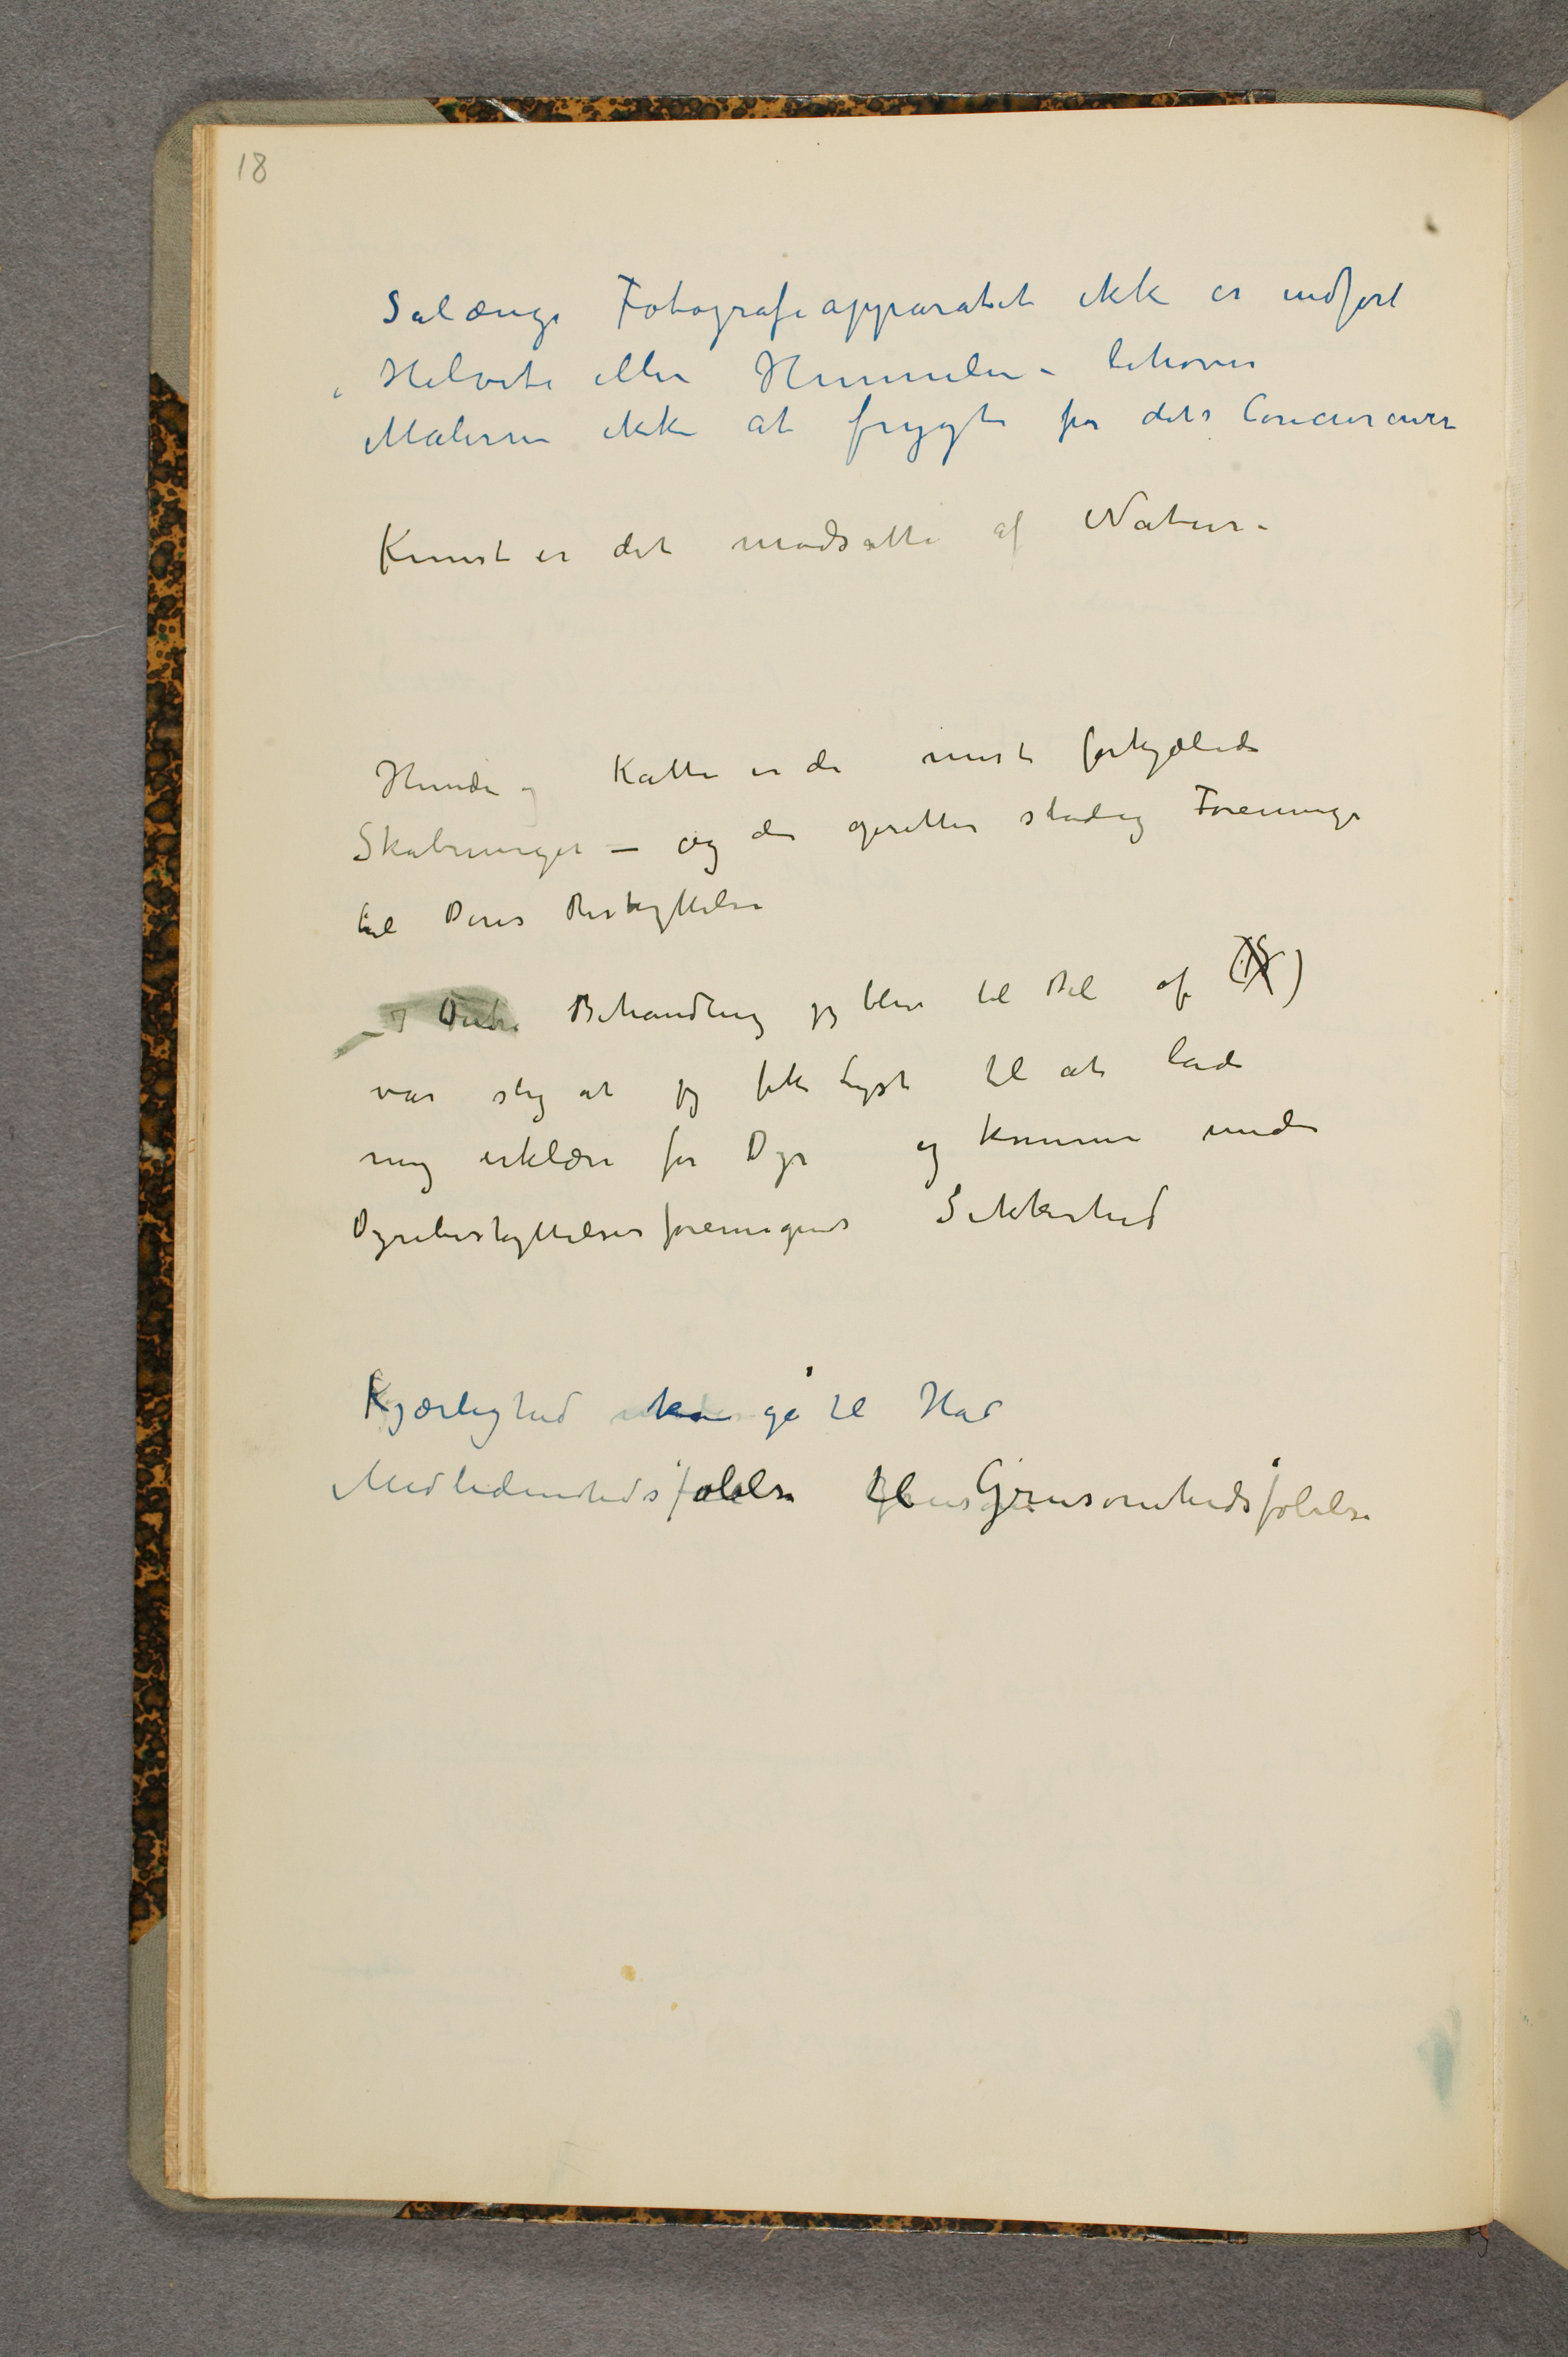 18
Salænge Fotografiapparatet ikke er indført
i Helvete eller Himmelen – behøver
Malerne ikke at frygte for dets Concurence
Kunst er det modsatte af Natur –
Hunde og Katte er de mest forkjælede
Skabninger – og der oprettes stadig Foreninger
til Deres Beskyttelse
– Behandling jeg blev til Del af )
var slig at jeg fik Lyst til at lade
mig erklære for Dyr og komme under
Dyrebeskyttelsesforeningens Sikkerhed
Kjærlighed kan gå til Had
Medlidenhedsfølelse til Grusomhedsfølelse